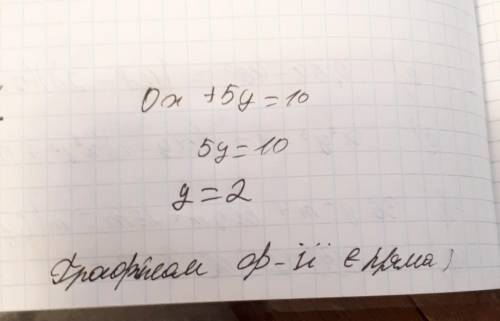 0x + 5y = 10
5y = 10
y = 2
Графіком ф-ії є пряма,